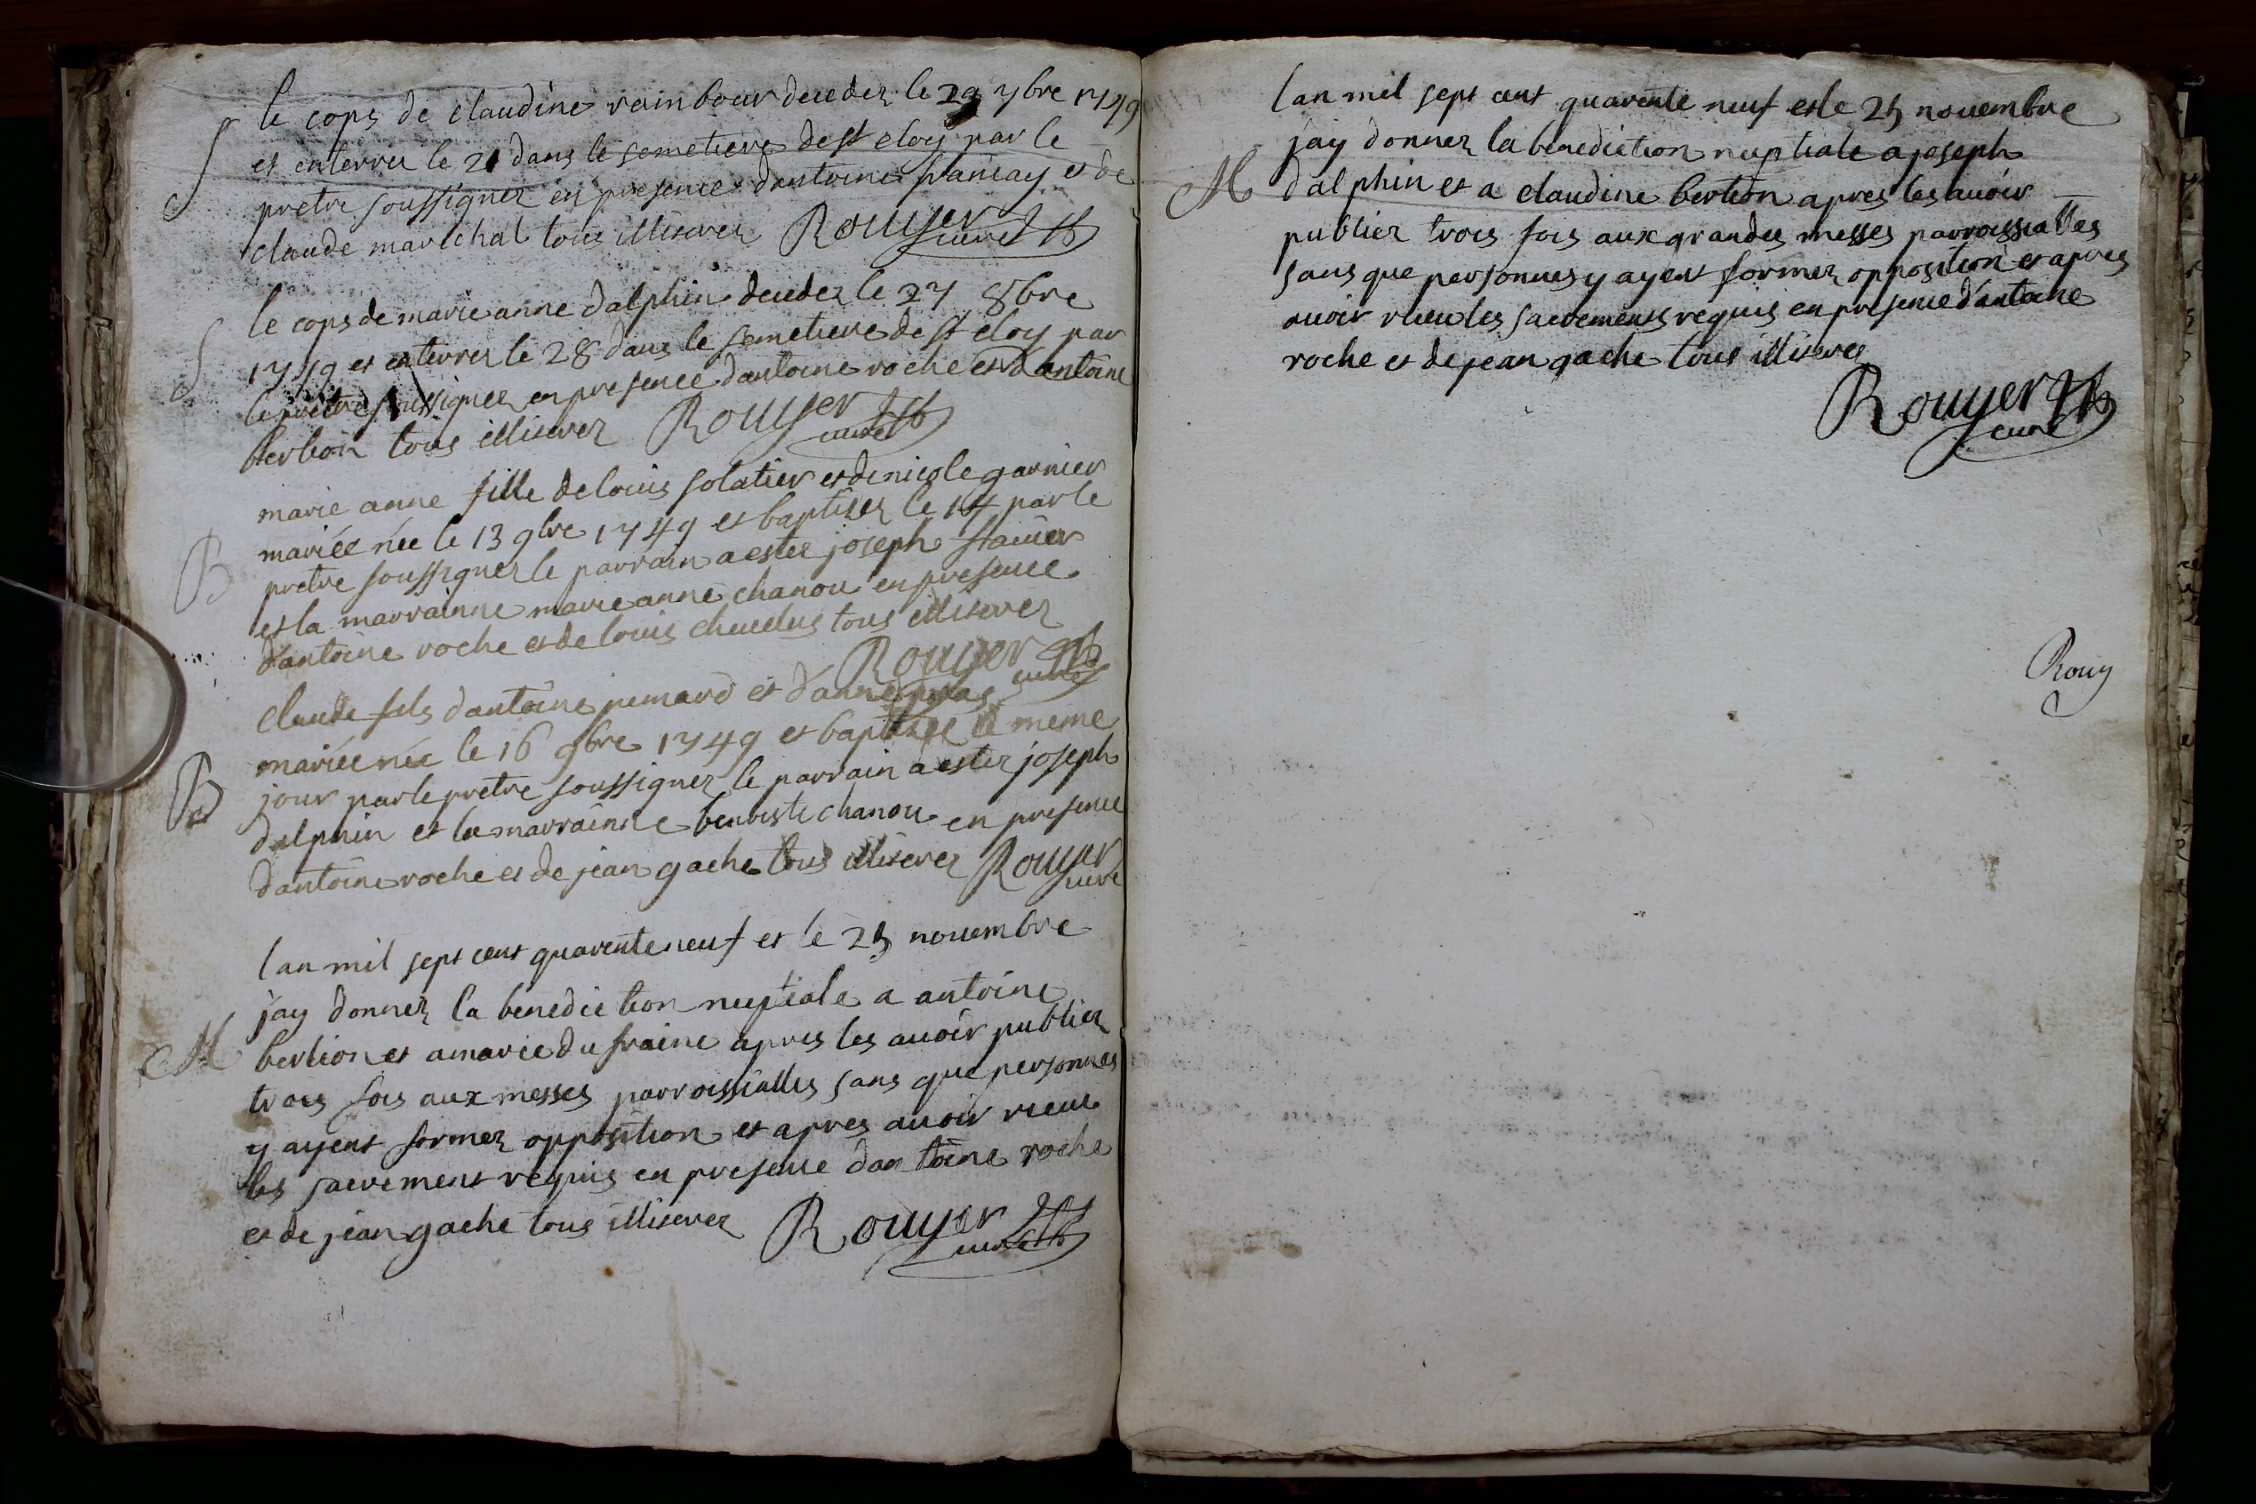 S
le cops de claudine rainbour decedez le 29 7bre 1749
et enterrer le 21 dans le semetiere de st eloy par le
pretre soussignez en presence dantoine francay et de
claude marechal tous illiterez Rouyer curé
S
le cops de marie anne dalphin decedez le 27 8bre
1749 et enterrer le 28 dans le semetiere de st eloy par
le pretre soussignez en presence dantoine roche et dantoine
berlion tous illiterez Rouyer curé
marie anne fille de louis solatier et de nicole garnier
mariée née le 13 9bre 1749 et baptisez le 14 par le
B
pretre soussignez le parrain a estez joseph
et la marrainne marie anne chanou en presence
dantoine roche et de louis tous illiterez
Rouyer curé
claude fils dantoine pemard et danne
mariée née le 16 9bre 1749 et baptisee le meme
B
jour par le pretre soussignez le parrain a estez joseph
dalphin et la marrainne benoiste chanou en presence
dantoine roche et de jean gache tous illiterez Rouyer curé
lan mil sept cent quarente neuf et le 25 novembre
jay donnez la benediction nuptiale a antoine
M
berlion et a marie du fraine apres les avoir publiez
trois fois aux messes parroissialles sans que personnes
y ayent formez opposition et apres avoir receu
les sacrement requis en presence dantoine roche
et de jean gache tous illiterez Rouyer curé
lan mil sept cent quarente neuf et le 25 novembre
jay donnez la benediction nuptiale a joseph
M
dalphin et a claudine berlion apres les avoir
publiez trois fois aux grandes messes parroissialles
sans que personnes y ayent formez opposition et apres
avoir receu les sacrements requis en presence dantoine
roche et de jean gache tous illiterez
Rouyer curé
Rouy